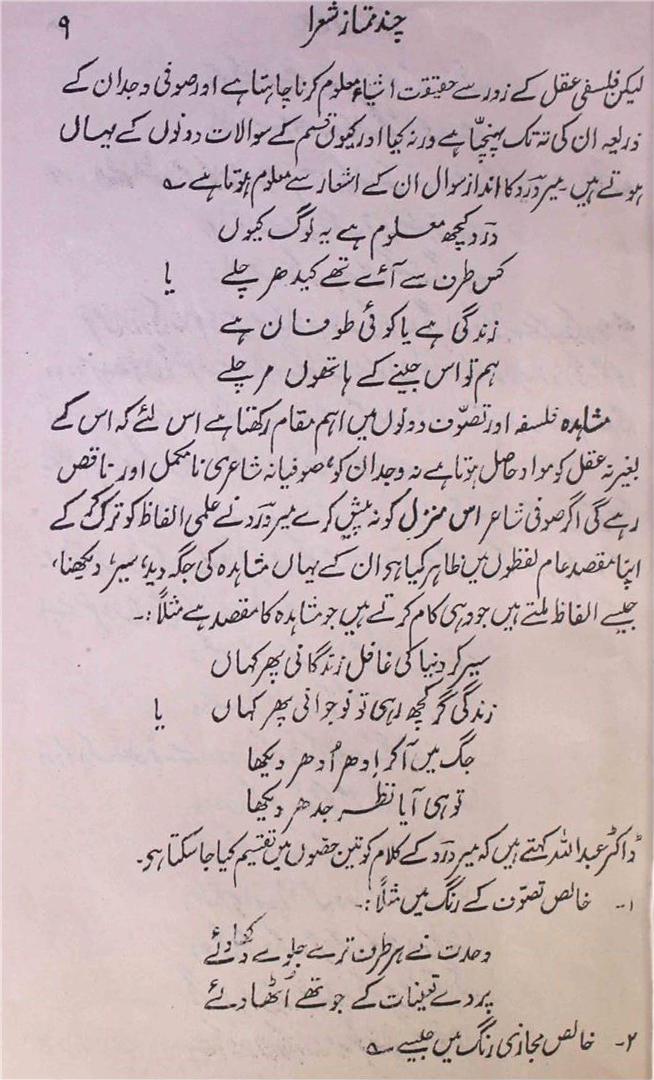 چند ممتاز شعرا ۹
لیکن فلسفی عقل کے زور سے حقیقت اشیاء معلوم کرنا چاہتا ہے اور صوفی وجدان کے
ذریعہ ان کی تہ تک پہنچتا ہے ورنہ کیا اور کیوں قسم کے سوالات دونوں کے یہاں
ہوتے ہیں۔ میر دردؔ کا انداز سوال ان کے اشعار سے معلوم ہوتا ہے ؎
دردؔ کچھ معلوم ہے یہ لوگ کیوں
کس طرف سے آئے تھے کیدھر چلے یا
زندگی ہے یا کوئی طوفان ہے
ہم تو اس جینے کے ہاتھوں مر چلے
مشاہدہ فلسفہ اور تصوّف دونوں میں اہم مقام رکھتا ہے اس لئے کہ اس کے
بغیر نہ عقل کو مواد حاصل ہوتا ہے نہ وجدان کو، صوفیانہ شاعری نامکمل اور ناقص
رہے گی اگر صوفی شاعر اس منزل کو نہ پیش کرے میر دردؔ نے علمی الفاظ کو ترک کر کے
اپنا مقصد عام لفظوں میں ظاہر کیا ہو ان کے یہاں مشاہدہ کی جگہ دید، سیر، دیکھنا،
جیسے الفاظ ملتے ہیں جو وہی کام کرتے ہیں جو مشاہدہ کا مقصد ہے مثلاً:۔
سیر کر دنیا کی غافل زندگانی پھر کہاں
زندگی گر کچھ رہی تو نوجوانی پھر کہاں یا
جگ میں آکر اِدھر اُدھر دیکھا
تو ہی آیا نظر جدھر دیکھا
ڈاکٹر عبداللہ کہتے ہیں کہ میر دردؔ کے کلام کو تین حصّوں میں تقسیم کیا جاسکتا ہو۔
۱۔ خالص تصوّف کے رنگ میں مثلاً:۔
وحدت نے ہر طرف ترے جلوے دکھا دئے
پردے تعینات کے جو تھے اُٹھا دئے
۲۔ خالص مجازی رنگ میں جیسے ؎